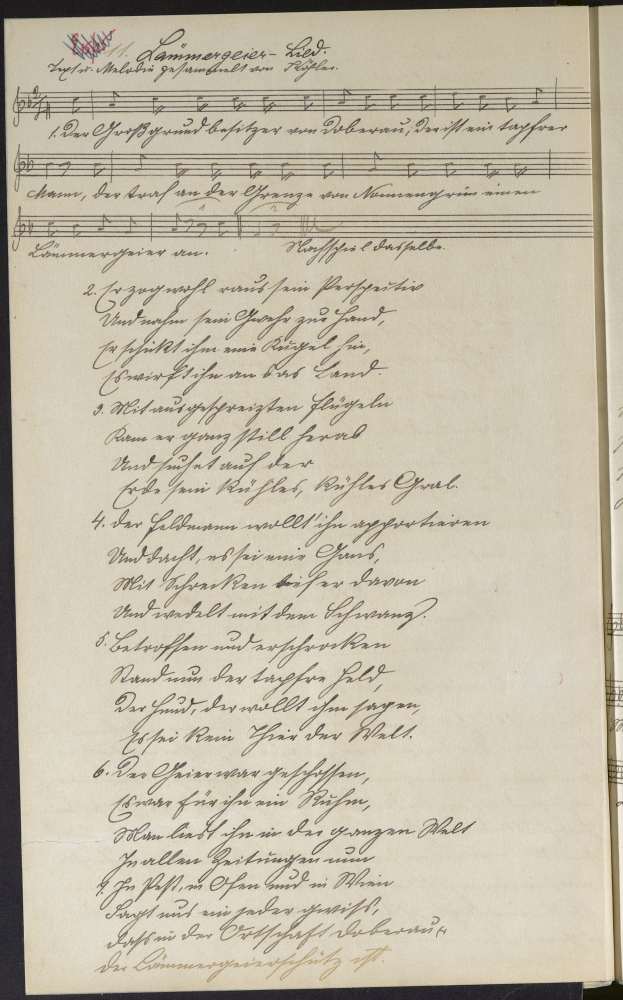 11. Lämmergeier-Lied.
Text u. Melodie gesammelt von
1. Der Großgrundbesitzer von Doberau, der ist ein tapfrer
Mann, der traf an der Grenze von Nonnengrün einen
Lämmergeier an. Nachspiel dasselbe.
2. Er zog wohl raus sein Perspectiv
Und nahm sein Gwehr zur Hand,
Er schickt ihm eine Kugel hin,
Es wirft ihn an das Land.
3. Mit ausgespreizten Flügeln
Kam er ganz still herab
Und suchet auf der
Erde sein kühles, kühles Grab.
4. Der Feldmann wollt' ihn apportieren
Und dacht, es sei eine Gans,
Mit Schrecken lief er davon
Und wedelt mit dem Schwanz.
5. Betroffen und erschrocken
Stand nun der tapfre Held,
Der Hund, der wollt ihm sagen,
Es sei kein Thier der Welt.
6. Der Geier war geschossen,
Es war für ihn ein Ruhm,
Man liest ihn in der ganzen Welt
In allen Zeitungen nun
7. In Pest, in Ofen und in Wien
Sagt uns ein jeder gwiss,
Dass in der Ortschaft Doberau
der Lämmergeierschütz ist.